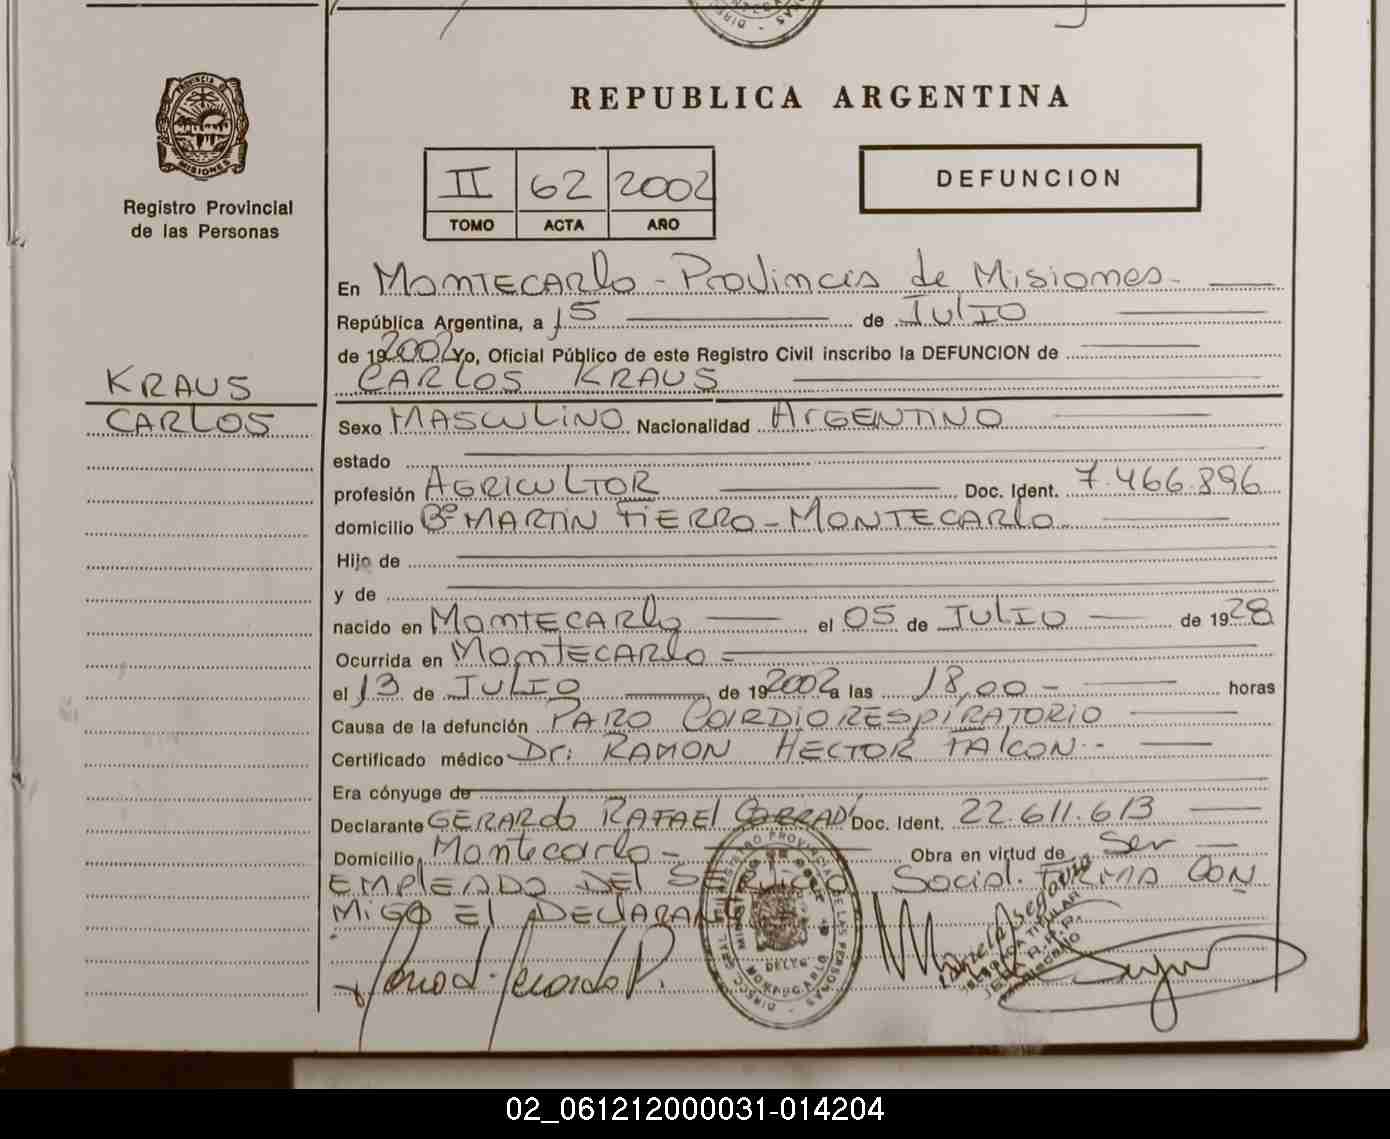 REPUBLICA ARGENTINA
PROVINCIA DE
MISIONES
Registro Provincial
de las Personas
II 62 2002
TOMO ACTA AÑO
DEFUNCION
En MONTECARlo - Provincia de Misiones -
República Argentina, a 15 de JULIO
de 192002 Yo, Oficial Público de este Registro Civil inscribo la DEFUNCION de
CARLOS KRAUS
KRAUS
CARLOS
Sexo MASCULINO Nacionalidad ARGENTINO
estado
profesión AGRICULTOR Doc. Ident. 7.466.896
domicilio Bº MARTIN FIERRO - MONTECARlo
Hijo de
y de
nacido en MONTECARlo el 05 de JULIO de 1928
Ocurrida en MONTECARLO -
el 13 de JULIO de 192002 a las 18,00 - horas
Causa de la defunción PARO CARDIORESPIRATORIO
Certificado médico Dr: RAMON HECTOR FALCON -
Era cónyuge de
Declarante GERARDO RAFAEL Doc. Ident. 22.611.613
Domicilio Montecarlo - Obra en virtud de Ser
EMPLEADO DEL Social. FIRMA CON
MIGO El DECLARANTE
02_061212000031-014204